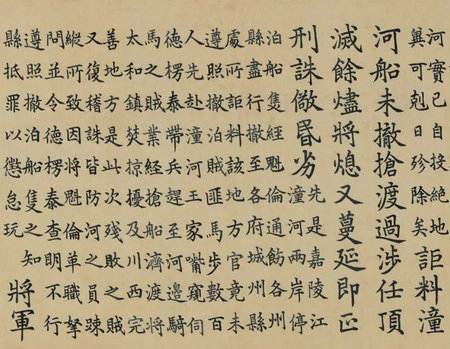 河實已自投絕地
冀可剋日殄除矣詎料潼
河船未撤搶渡過涉任頂
滅餘燼將熄又蔓延即正
刑誅儆昏劣先是嘉陵江
潼河兩岸停
泊船隻經魁倫通飭各州
縣盡行撤至各府城州縣
處所詎料該地方官竟未
遵照撤泊賊匪馬步數百
人先赴潼河王家嘴窺伺
德楞泰帶兵趕至河邊騎
馬之賊業經搶船濟渡將
太和鎮焚掠擾及川西完
善地方是此次殘敗之賊
又復稽誅皆防河之員疎
縱所致因將魁倫革職拏
問並令德楞泰查明不行
遵照撤泊船隻之知
縣抵罪以懲怠玩
將軍